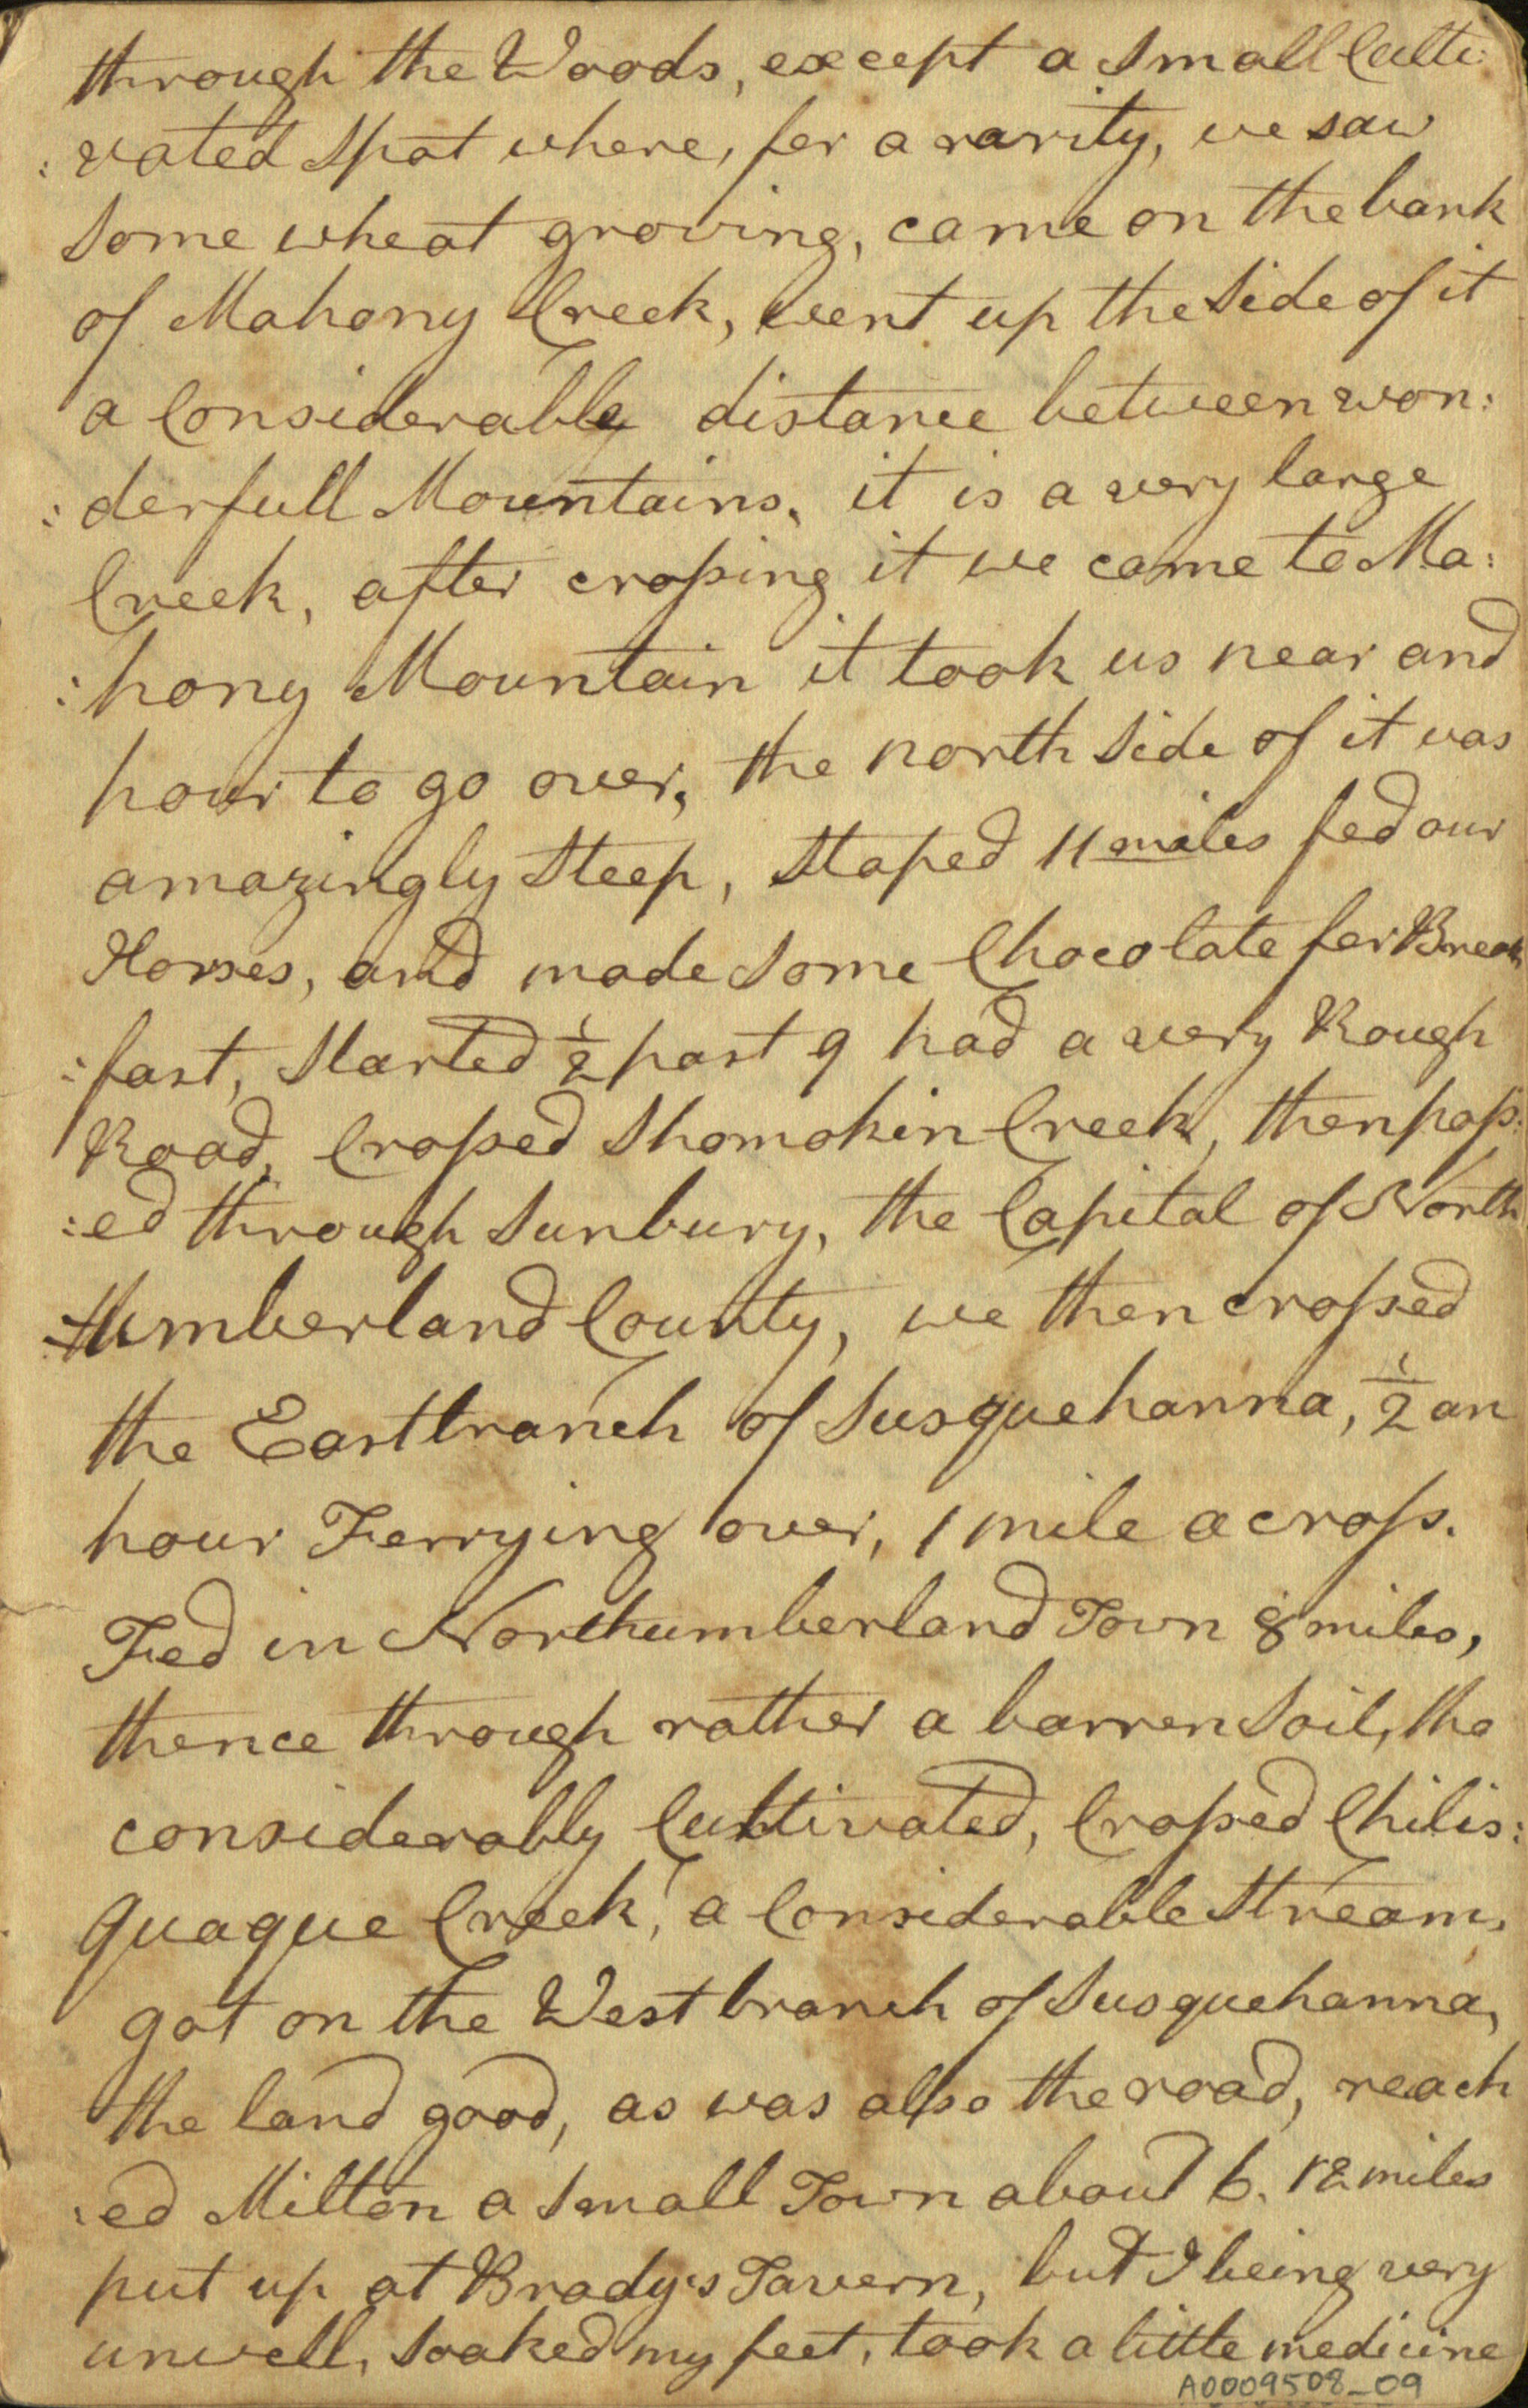 through the Woods, except a small Culti:
: vated spot where, for a rarity, we saw
some wheat growing, came on the bank
of Mahony Creek, went up the side of it
a Considerable distance between won:
: derfull Mountains, it is a very large
Creek, after crossing it we came to Ma:
: hony Mountain it took us near and
hour to go over, the north side of it was
amazingly steep, stoped 11 miles fed our
Horses, and made some Chocolate for Break
: fast, started ½ past 9 had a very Rough
Road, Crossed Shomokin Creek, then pass:
: ed through Sunbury, the Capital of North
humberland County, we then crossed
the East branch of Susquehanna, ½ an
hour Ferrying over, 1 mile across.
Fed in Northumberland Town 8 miles,
thence through rather a barren soil, tho
considerably Cultivated, Crossed Chilis:
quaque Creek, a Considerable stream,
got on the West branch of Susquehanna,
the land good, as was also the road, reach
: ed Milton a small Town about 6. 12 miles
put up at Brady's Tavern, but I being very
unwell, soaked my feet, took a little medicine
A0009508_09